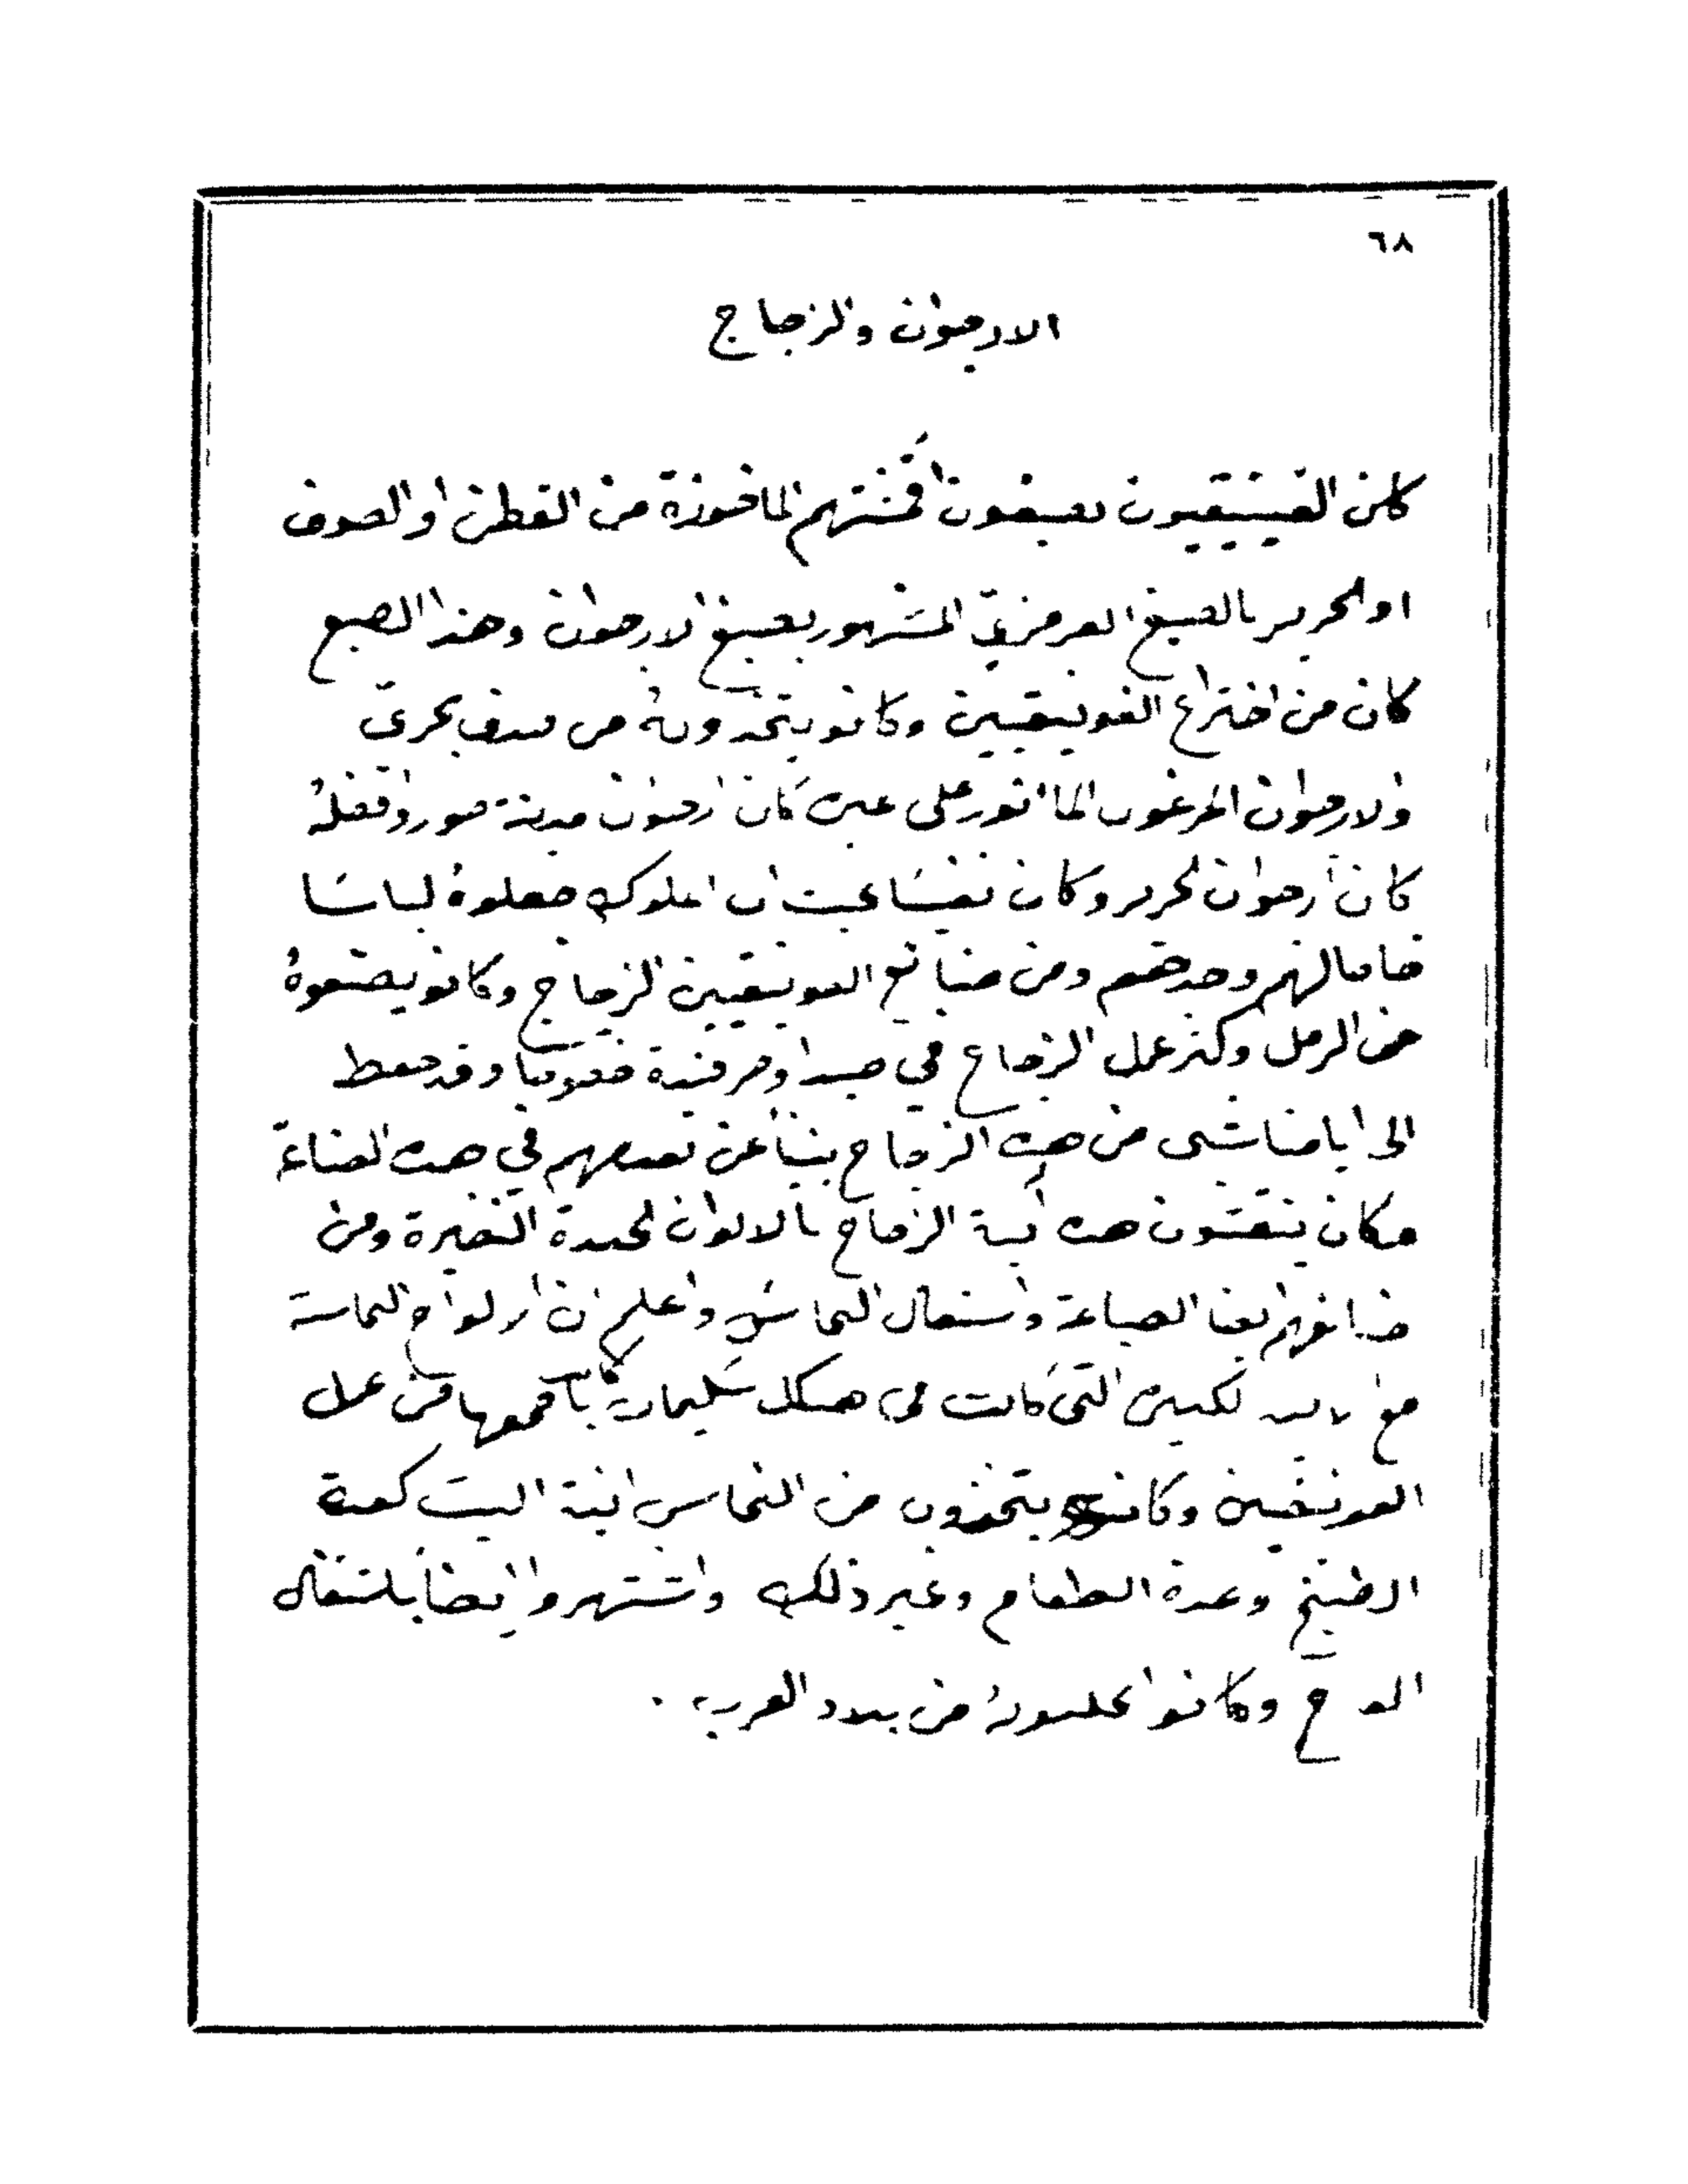 ٦٨
الارجوان والزجاج
كان الفينيقيون يصبغون اقمشتهم الماخوذة من القطن او الصوف
او الحرير بالصبغ القرمزيّ المشهور بصبغ الارجوان وهذا الصبغ
كان من اختراع الفونيقيين وكانو يتخذونهُ من صدف بحريّ
والارجوان المرغوب على كان ارجوان مدينة صور وافضلهُ
كان أرجوان الحرير وكان نفيسًا بحيث ان الملوك جعلوهُ لباسًا
خاصا لهم وحدهم ومن صنائع الفونيقيين الزجاج وكانو يصنعوهُ
من الرمل وكثر عمل الزجاج في صيدا وصرفندة خصوصًا وقد حفظ
الى ايامنا شى من هذه الزجاج ينبأ عن تقدمهم في هذه الصناعة
وكان ينقشون هذه آنية الزجاج بالالوان الجيدة النضيرة ومن
صنائعهم ايضا الصباغة واستعمال النحاس واعلم ان الالواح النحاسية
مع الكبيرة التي كانت في هيكل سليمان باجمعها من عمل
الفونيقيين وكانو يتخذون من النحاس انية البيت كعدة
الطبيخ وعدة الطعام وغير ذلك واشتهروا ايضاً باستعمال
وكانوا يجلبونهُ من بلاد العرب .